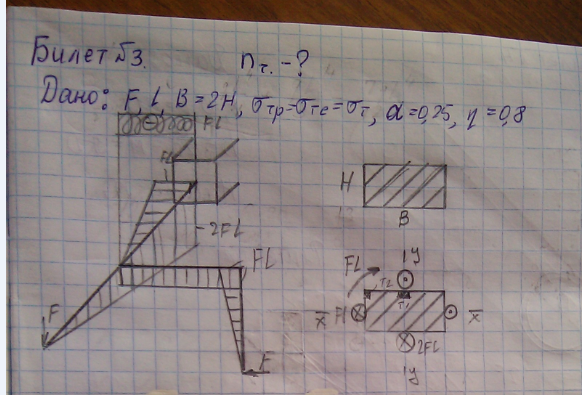 Билет №3.
n т. - ?
Дано: F, l, B = 2H, σтр = σтс = σт, α = 0,25, η = 0,8
Fl
Fl
2Fl
Fl
F
F
H
B
y
Fl
T2
T1
x
Fl
x
2Fl
y